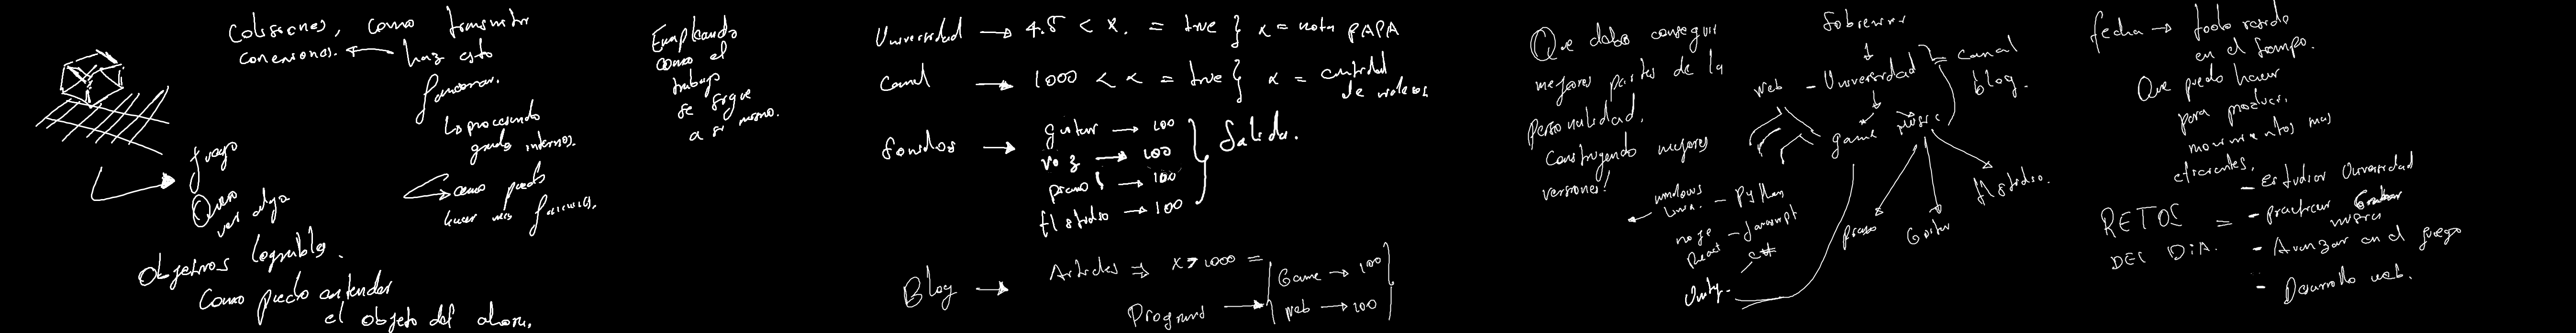 Colisiones, como transmitir
conexiones. ← haz esto
funcionar.
↳ procesando
grados internos.
↳ como puedo
hacer mis funciones.
Juego
Quiero
ver algo
Objetivos logrables.
Como puedo entender
el objeto del ahora.
Empleando
como el
trabajo
se sigue
a si mismo.
Universidad → 4.5 < x. = true } x = nota PAPA
Canal → 1000 < x = true } x = cantidad
de videos
Sonidos →
guitar → 100
voz → 100
piano → 100
fl studio → 100
Salida.
Blog →
Articles ⇒ x > 1000 =
Program →
Game → 100
web → 100
Que debo conseguir
mejores partes de la
personalidad,
Construyendo mejores
versiones!
Sobrevivir
↓
web - Universidad = canal
blog.
game music
piano
Guitar
fl studio.
windows
linux. - Python
node - javascript
React
C#
Unity.
fecha → todo reside
en el tiempo.
Que puedo hacer
para producir,
movimientos mas
eficientes.
RETOS
DEL DIA. =
- Estudiar Universidad
- practicar
musica
- Avanzar en el juego
- Desarrollo web.